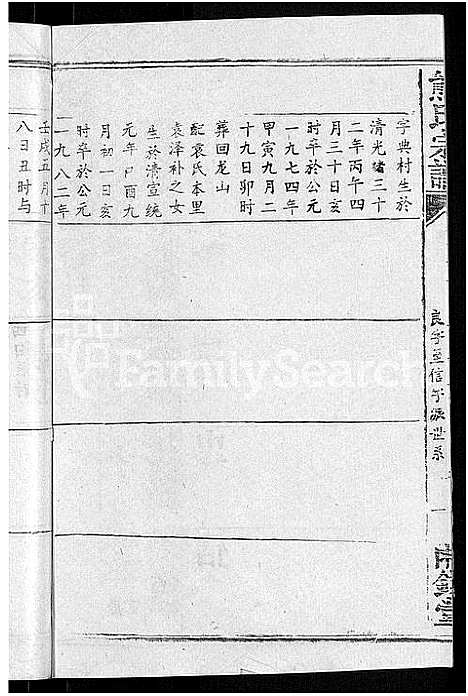 字典村生於
清光緒三十
二年丙午四
月三十日亥
时卒於公元
一九七四年
甲寅九月二
十九日卯时
葬回龙山
配袁氏本里
袁泽补之女
生於清宣統
元年己酉九
月初一日亥
时卒於公元
一九八二年
壬戌五月十
八日丑时与
良字至信字派世系
FamilySearch